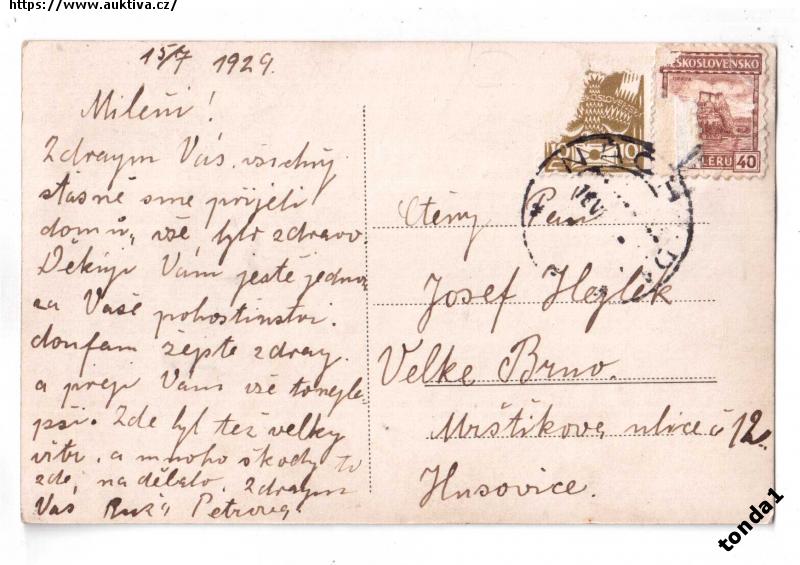 https://www.auktiva.cz/
15/7 1929.
Mileni!
Zdravym Vás. všichny
stásně sme přijeli
domů, vše bylo zdravo.
Děkuji Vám jestě jednou
za Vaše pohostinstvi.
doufam žejste zdrav.
a preji Vám vše tonejle-
pši. Zde byl tež velky
vitr. a mnoho skody to
zde, nadělalo. Zdravym
Vás Ruža Petrova.
ČESKOSLOVENSKO
40
10
Ctěny Pan
Josef Hejlek
Velke Brno.
Mrštikova ulice č 12.
Husovice.
tonda1